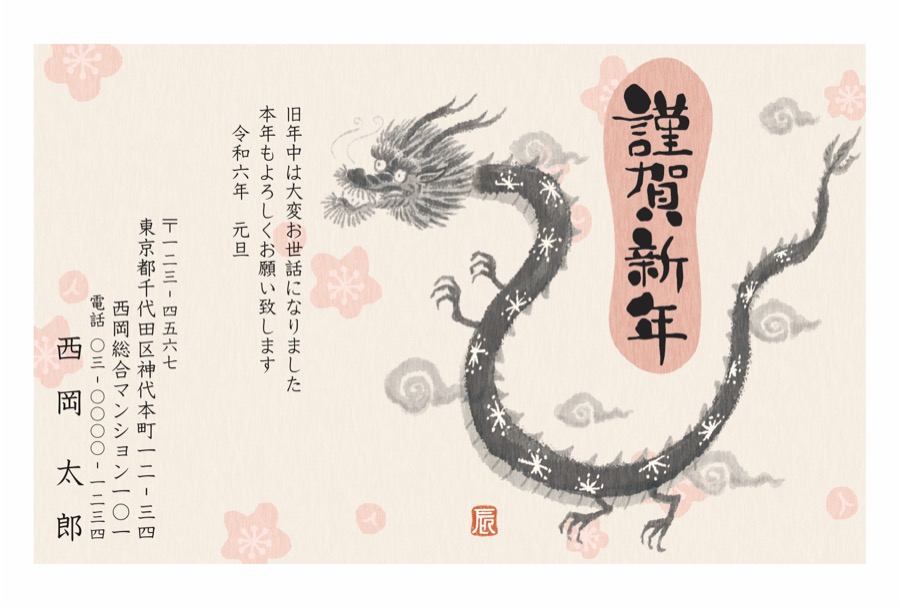 謹賀新年
旧年中は大変お世話になりました
本年もよろしくお願い致します
令和六年　元旦
〒一二三-四五六七
東京都千代田区神代本町一二-三四
西岡総合マンション一〇一
電話　〇三-〇〇〇〇-一二三四
西岡太郎
辰